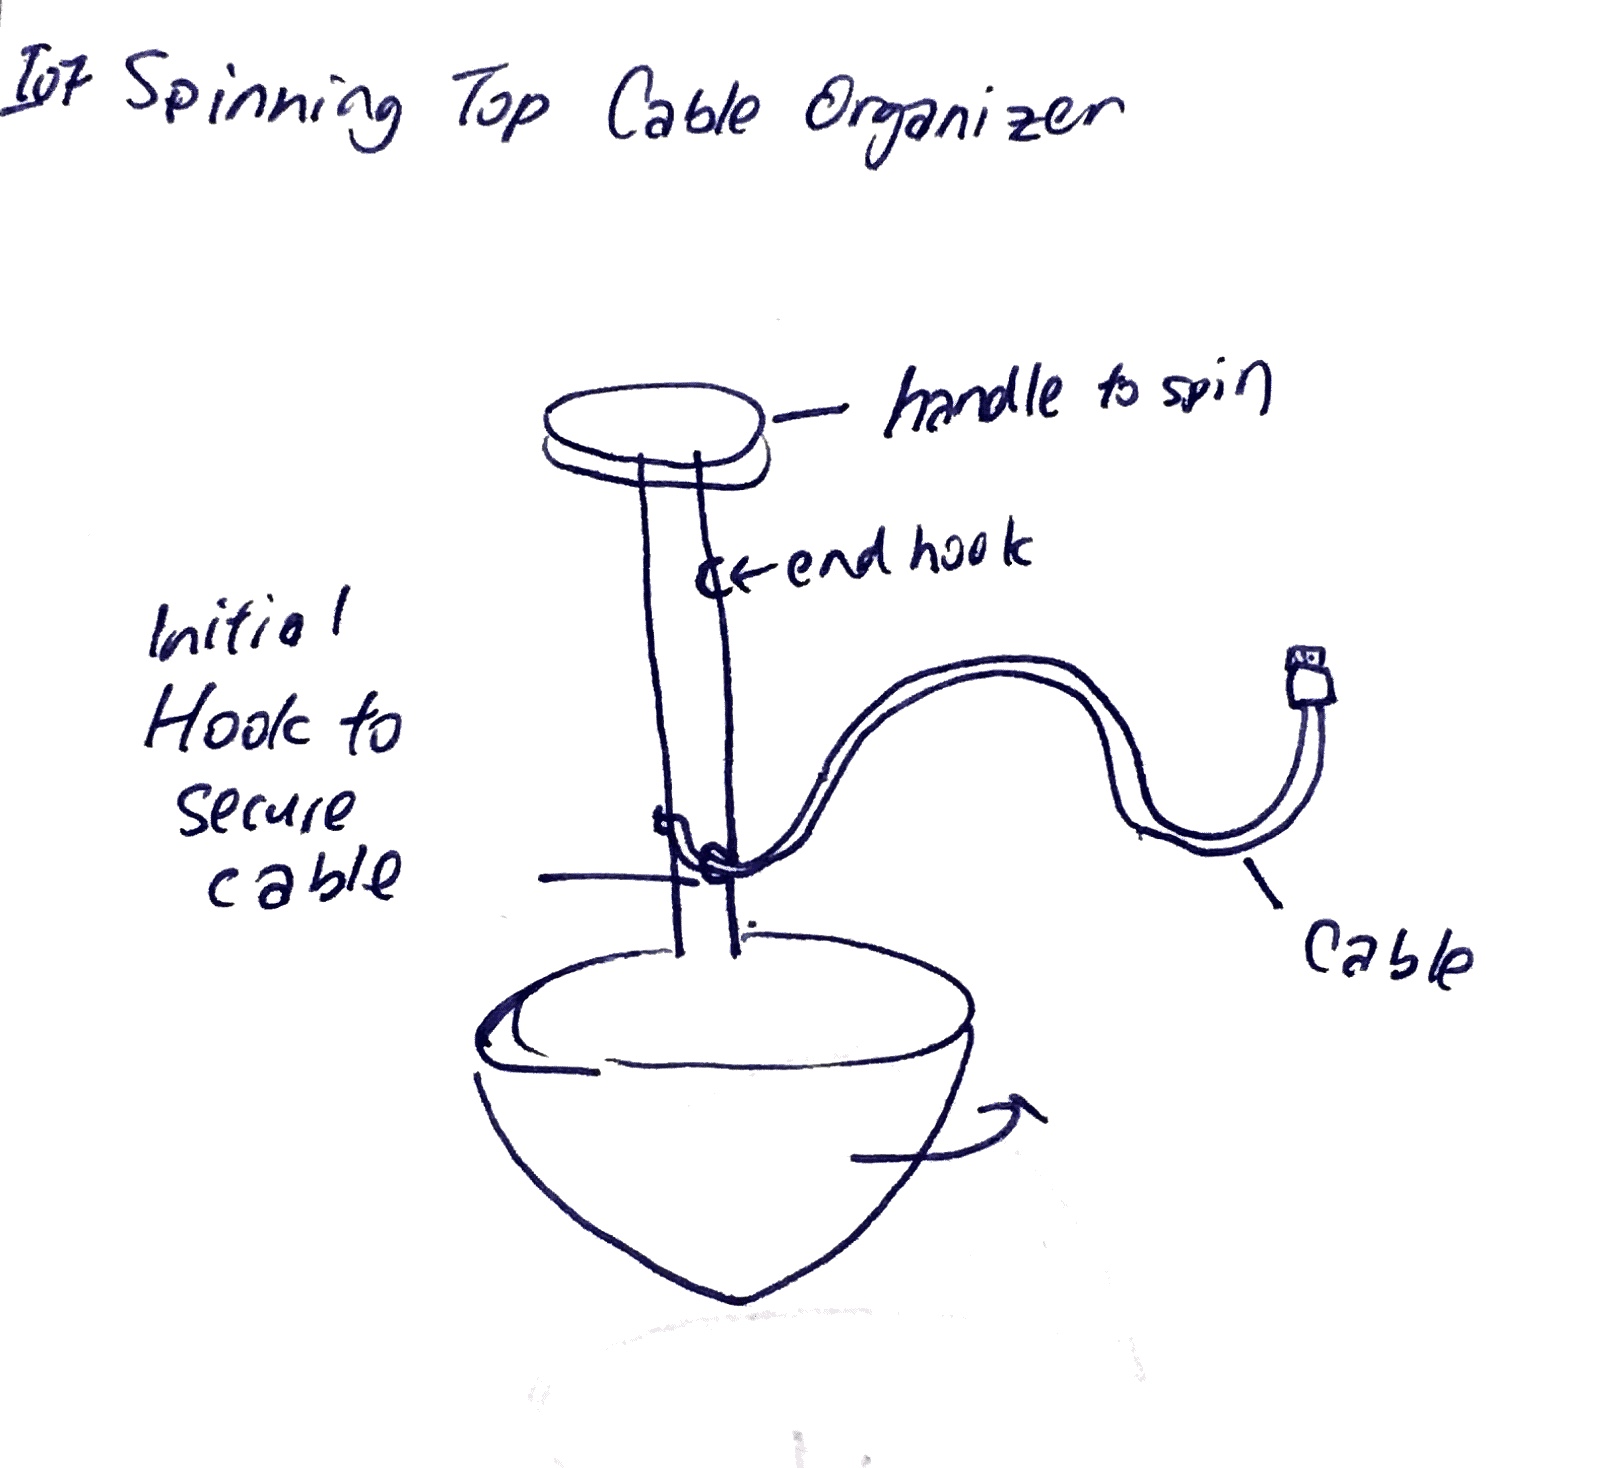 IoT Spinning Top Cable Organizer
handle to spin
end hook
Initial
Hook to
secure
cable
Cable